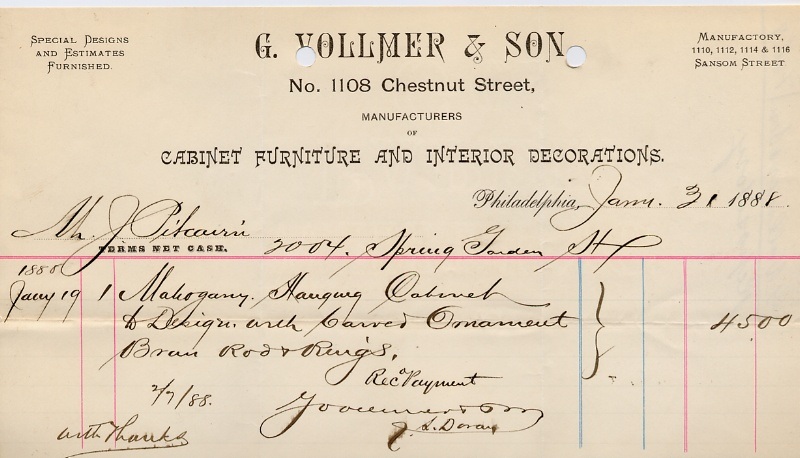 SPECIAL DESIGNS
AND ESTIMATES
FURNISHED.
G. VOLLMER & SON
No. 1108 Chestnut Street,
MANUFACTURERS
OF
CABINET FURNITURE AND INTERIOR DECORATIONS.
MANUFACTORY,
1110, 1112, 1114 & 1116
SANSOM STREET
Philadelphia, Jany. 31 1888.
Mr. J Pitcairn
TERMS NET CASH.
2004. Spring Garden St
1888
Jany 19 1 Mahogany Hanging Cabinet
to Design with Carved Ornament 4500
Brass Rod & Rings,
Recd Payment
2/7/88.
G Vollmer & Son
With Thanks